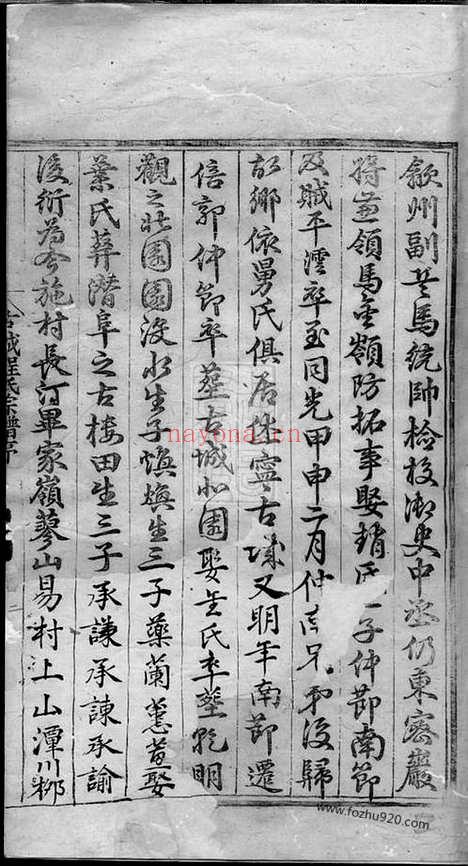 歙州副兵馬統帥檢校御史中丞仍東密巖
將兼領馬金嶺防拓事娶趙氏子仲節南節
及賊平澐卒至同光甲申二月仲兄弟後歸
故鄉依舅氏俱居休寧古城又明年南節遷
倍郭仲節卒塟古城北園娶吳氏卒塋乾明
觀之北園園沒水生子慎慎生三子藥蘭蕙蘭娶
葉氏葬潛阜之古楼田生三子承謙承諫承諭
後衍為今施村長汀畢家嶺蓼山易村上山潭川鄉
古城程氏宗譜序
nayona.cn
www.fozhu920.com